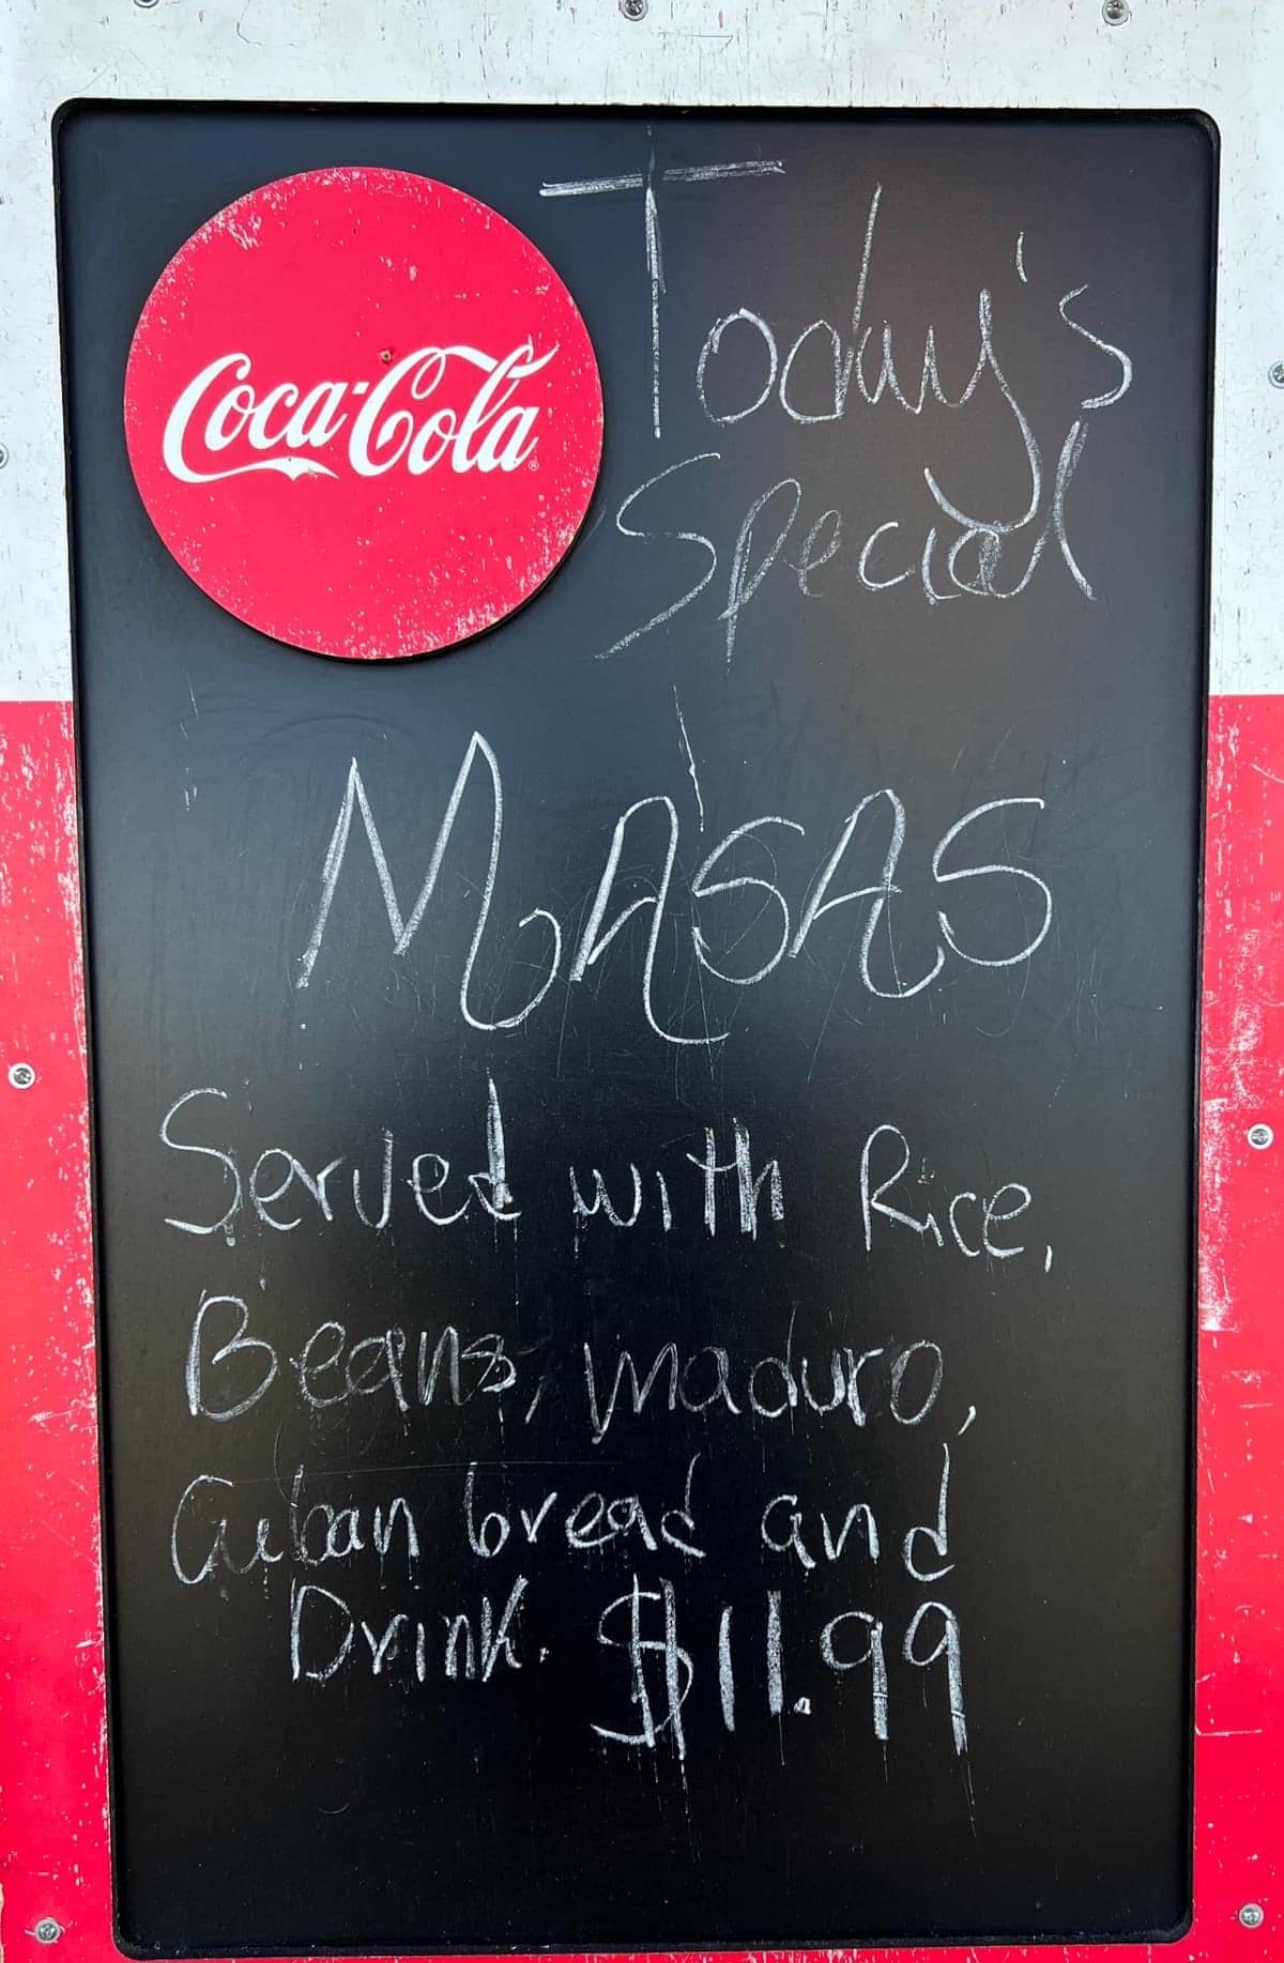 Coca-Cola
Today's
Special
MASAS
Served with Rice,
Beans, maduro,
Cuban bread and
Drink. $11.99